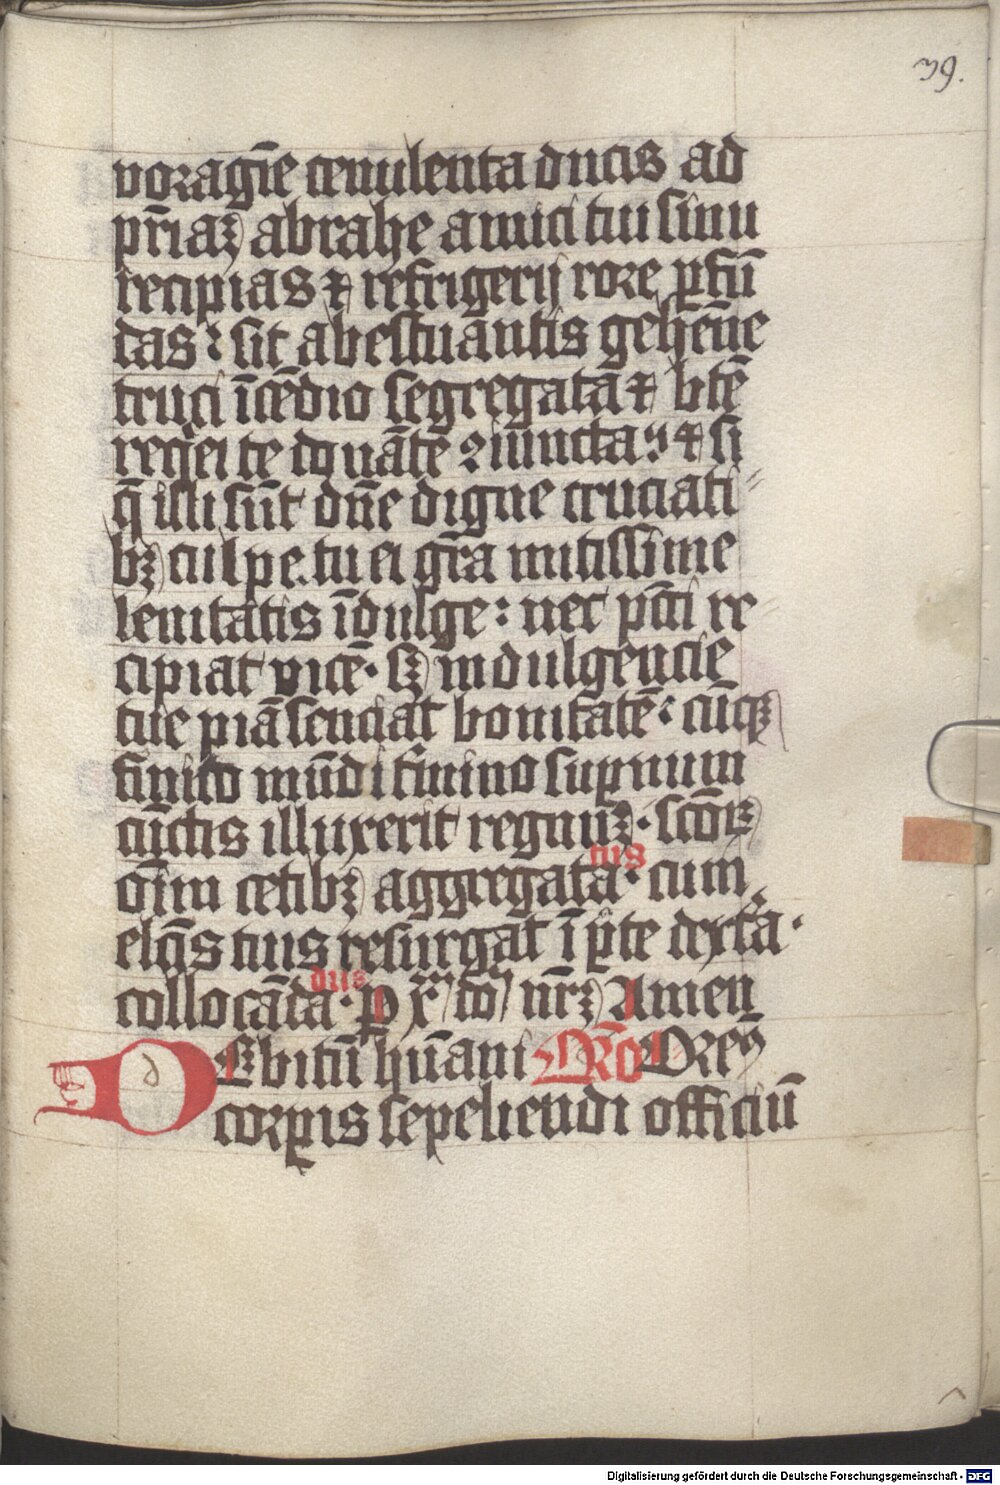 39.
voragīe cenulenta ducis ad
pr̄iaꝫ abrahe amici tui sinu
recipias ⁊ refrigerij rore ꝑfū
das : sit ab estuantis gehēne
truci īcēdio segregata ⁊ btē
req̄ei te donāte ꝯiuncta : ⁊ si
q̄ illi sūt dn̄e digne cruciati
bꝫ culpe. tu ei gr̄a mitissime
lenitatis īdulge : nec pc̄ti re
cipiat vicē · sꝫ indulgencie
tue piā senciat bonitatē : cūqꝫ
finito mūdi t̄mino suꝑnum
cūctis illuxerit regnuꝫ · scōꝝ
tus
om̄i cetibꝫ aggregata · cum
elc̄is tuis resurgat ī ꝑte dextr̄a ·
dus
collocāda · P xᷓm do nrꝫ Amen
DEbitū hūani ORō Oreꝰ
corꝑis sepeliendi officiū
Digitalisierung gefördert durch die Deutsche Forschungsgemeinschaft - DFG